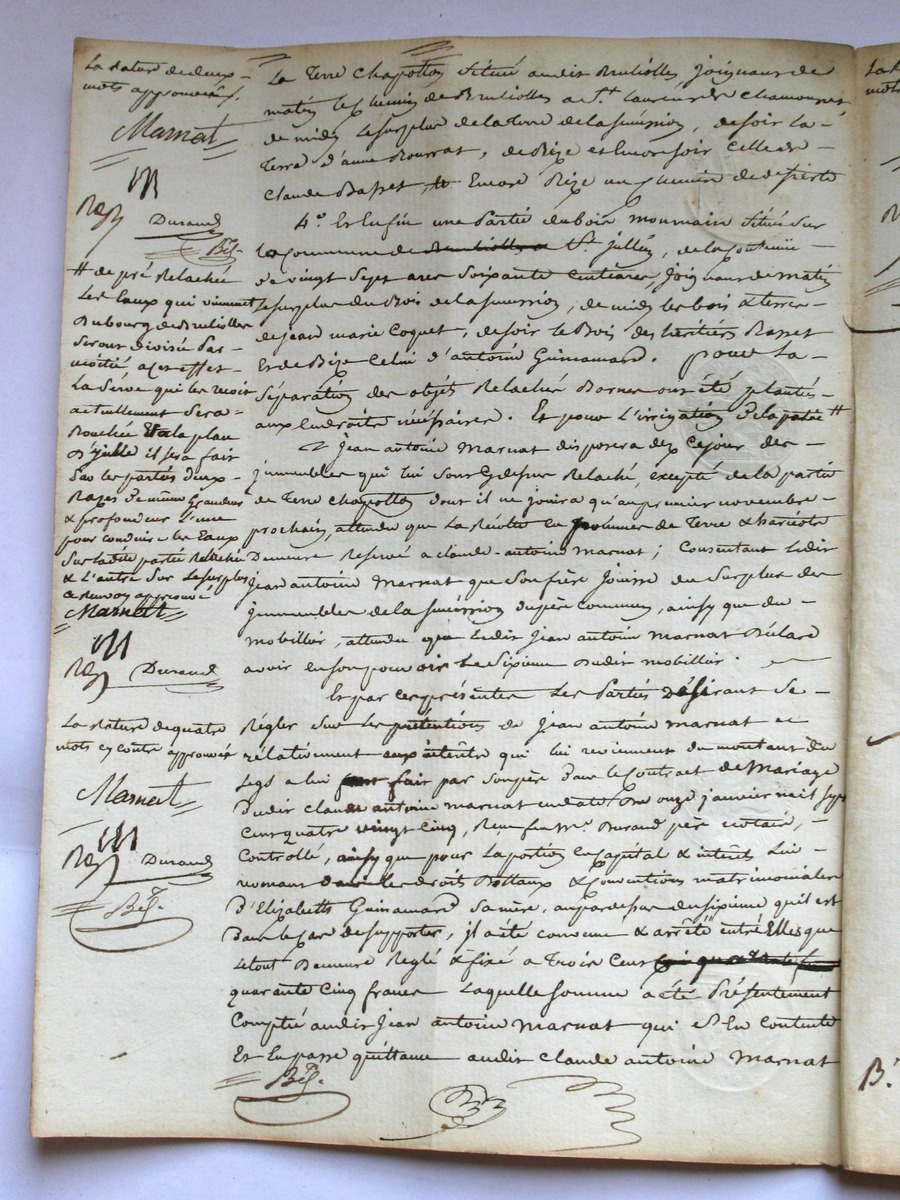 La Rature de deux
mots approuvée /.
Marnat
Durand
La Terre Chapollon située audit Brullioles joignant de
matin le chemin de Brullioles a St. Laurent de Chamousset
de midy le surplus de la terre de la succession, de soir la
Terre d'anne Bourrat, de Bize et Encore soir celle de
Claude Basset, Et Encore Bize un chemin de desserte
4.° Et Enfin une Partie du bois Mournain située sur
la Commune de St. jullien, de la Contenue
de vingt Sept ares Soixante Centiares, Joignant de matin
le surplus du Bois de la succession, de midy les bois & terre
de jean marie Coquet, de soir le Bois des héritiers Basset
Et de Bize Celui d'antoine Guinamard. pour la
Séparation des objets Relachés Bornes ont été plantés
aux Endroits nécéssaires. Et pour L'irrigation de la partie #
Jean antoine Marnat disposera dez ce jour des
jmmeubles qui lui sont cy dessus Relaché, excepté de la partie
de Terre Chapollon dont il ne jouira qu'au premier novembre
prochain, attendu que La Récolte en pommes de Terre & haricots
Demeure Reservé a claude-antoine Marnat ; Consentant Ledit
jean antoine Marnat que Son frère jouisse du Surplus des
jmmeubles de la succession du père commun, ainsy que du
mobillier, attendu que Ledit Jean antoine Marnat Déclare
avoir en son pouvoir Le Sixieme Dudit mobillier.
Et par ces présentes Les Parties Désirant Se
Régler Sur Les prétentions de Jean antoine Marnat et
rélativement aux intérêts qui lui reviennent du montant du
Legs a lui fait par Son père Dans le Contract de Mariage
Dudit Claude antoine Marnat en date Du onze janvier mil sept
Cent quatre vingt Cinq, Reçu feu Me. Durand père notaire,
Controllé, ainsy que pour La portion en Capital & intérêts Lui
revenant dans les droits Dottaux & Conventions matrimoniales
D'Elizabeth Guinamard Sa mère, au par dessus du sixieme qu'il est
Dans le Cas de Supporter, jl a été convenu & arrêté entré Elles que
Le tout Demeure Réglé & fixé a Trois Cent
quarante Cinq francs Laquelle Somme a été Présentement
Comptée audit Jean antoine Marnat qui s'En Contente
Et En passe quittance audit Claude antoine Marnat
# de pré Relachée
Les Eaux qui viennent
Du bourg de Brullioles
Seront divisée Par
moitié, a cet effet
La Serve qui les reçoit
actuellement Sera
Bouchée Et a la place
D'jcelle il sera fait
Par les parties deux
Rases de même Grandeur
& profondeur L'une
pour conduire les Eaux
Sur Ladite partie Relachée
& L'autre Sur Le surplus
Ce Renvoy approuvé
Marnat
Durand
La Rature de quatre
mots cy contre approuvée
Marnat
Durand